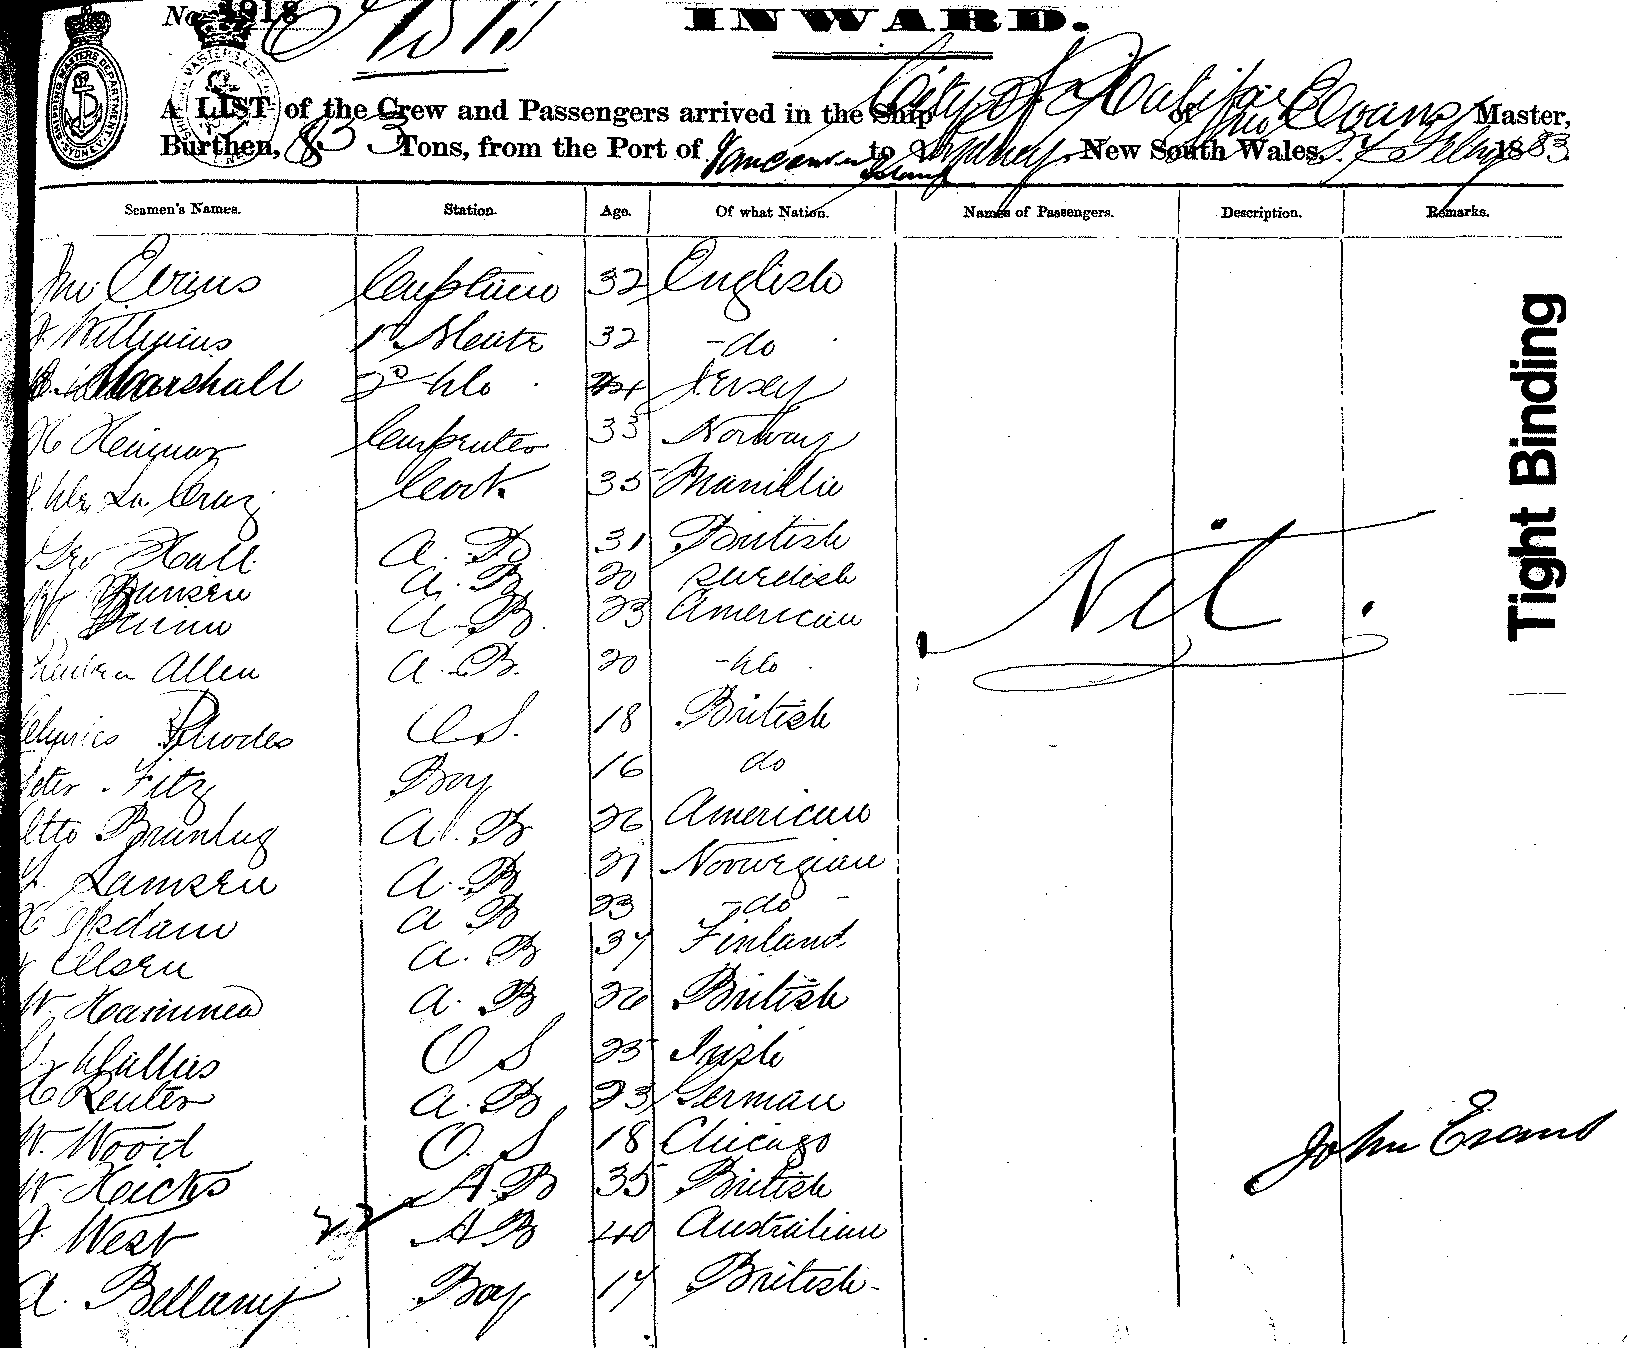 No. 1918
INWARD.
A LIST of the Crew and Passengers arrived in the Ship City of Halifax of Jno Evans Master,
Burthen, 833 Tons, from the Port of Vancouver Island to Sydney New South Wales, 7 Feby 1883
Seamen's Names. Station. Age. Of what Nation. Names of Passengers. Description. Remarks.
Jno Evans Captain 32 English
J Williams 1st Mate 32 - do
Marshall 2d do 24 Jersey
H Carpenter 33 Norway
de La Cruz Cook 35 Manilla
Geo Hall A. B 31 British
Hansen A. B 20 Swedish
W A. B. 23 American
Reuben Allen A. B. 20 - do
Nil.
Rhodes O S. 18 British
Peter Fitz Boy 16 do
Otto A. B 26 American
Lamsen A. B 21 Norwegian
A B 23 - do -
Olsen A. B 37 Finland
W. A. B 26 British
O S 23 Irish
H Reuter A. B 23 German
W. Wood O. S 18 Chicago
John Evans
W. Hicks A. B 35 British
J West 22 A B 40 Australian
A. Bellamy Boy 17 British
Tight Binding